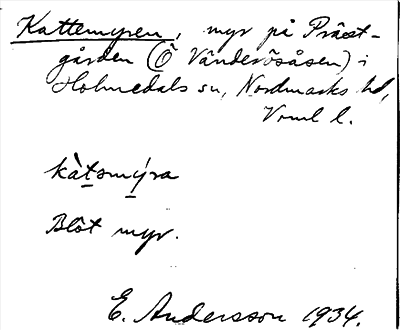 Kattemyren, myr på Präst-
gården (Ö Vänderösåsen) i
Holmedals sn, Nordmarks hd,
Vrml l.
kàtsmýra
Blöt myr.
E. Andersson 1934.